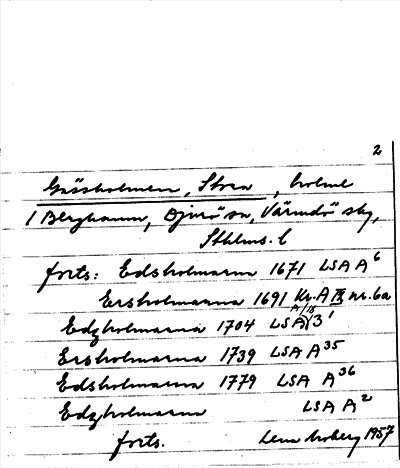 2
Gåsholmen, Stora, holme
i Berghamn, Djurö sn, Värmdö skg,
Sthlms. l
forts: Edsholmarna 1671 LSA A6
Ersholmarna 1691 Kr. A IX nr. 6a
Edzholmarna 1704 LSA A 18/3 1
Ersholmarna 1739 LSA A35
Edsholmarna 1779 LSA A36
Edzholmarna LSA A2
forts. Lena Moberg 1957